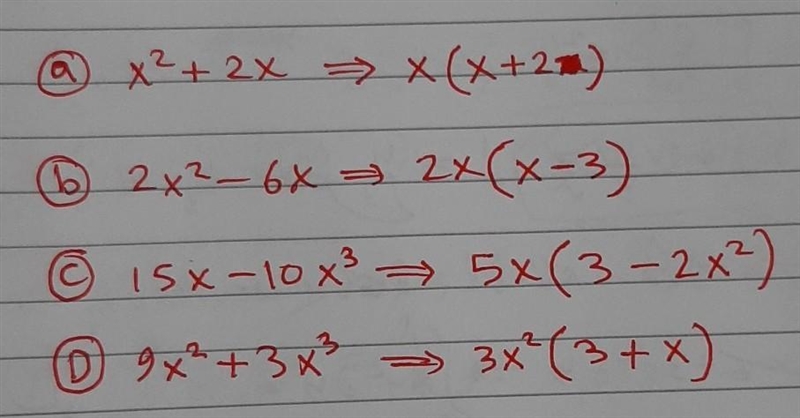 ⓐ x² + 2x ⇒ x(x+2)
ⓑ 2x² − 6x ⇒ 2x(x−3)
Ⓒ 15x − 10x³ ⇒ 5x(3 − 2x²)
Ⓓ 9x² + 3x³ ⇒ 3x²(3 + x)